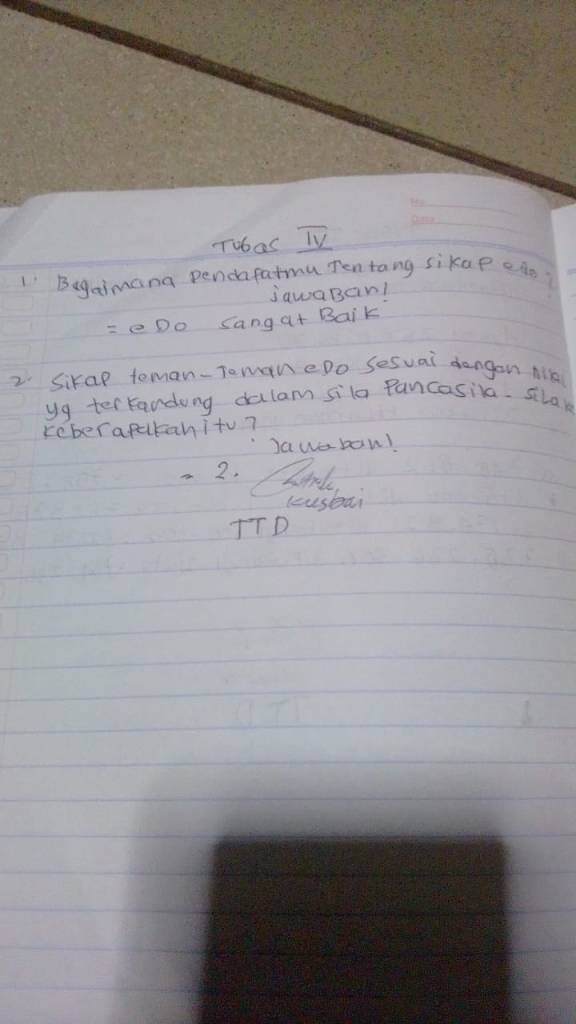 No
Date
Tugas IV
1. Bagaimana Pendapatmu Tentang sikap edo?
jawaBan!
= eDo sangat Baik
2. Sikap teman-Teman eDo sesuai dengan Nilai
yg terkandung dalam sila Pancasila. Sila ke
keberapakah itu?
Jawaban!
= 2.
kusbai
TTD